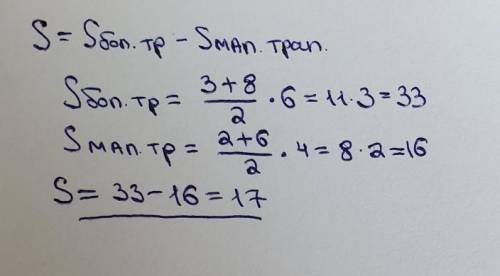 S = Sбол.тр − Sмал.трап.
Sбол.тр = \frac{3+8}{2} · 6 = 11·3 = 33
Sмал.тр = \frac{2+6}{2} · 4 = 8·2 = 16
S = 33 − 16 = 17